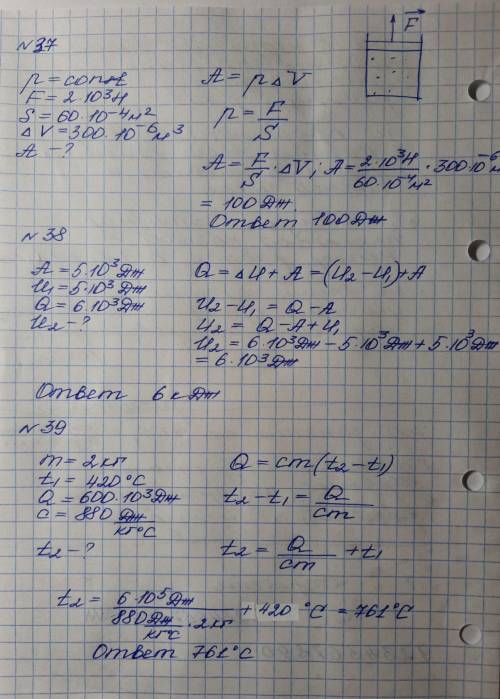 №37
F
p = const
F = 2·10³Н
S = 60·10⁻⁴м²
ΔV = 300·10⁻⁶м³
A - ?
A = pΔV
p = F/S
A = F/S · ΔV; A = 2·10³Н/60·10⁻⁴м² · 300·10⁻⁶м
= 100 Дж
Ответ 100Дж
№38
A = 5·10³Дж
U₁ = 5·10³Дж
Q = 6·10³Дж
U₂ - ?
Q = ΔU + A = (U₂ - U₁) + A
U₂ - U₁ = Q - A
U₂ = Q - A + U₁
U₂ = 6·10³Дж - 5·10³Дж + 5·10³Дж
= 6·10³Дж
Ответ 6кДж
№39
m = 2кг
t₁ = 420°C
Q = 600·10³Дж
c = 880 Дж/кг°C
t₂ - ?
Q = cm(t₂ - t₁)
t₂ - t₁ = Q/cm
t₂ = Q/cm + t₁
t₂ = 6·10⁵Дж/880 Дж/кг°C · 2кг + 420 °C = 761°C
Ответ 761°C